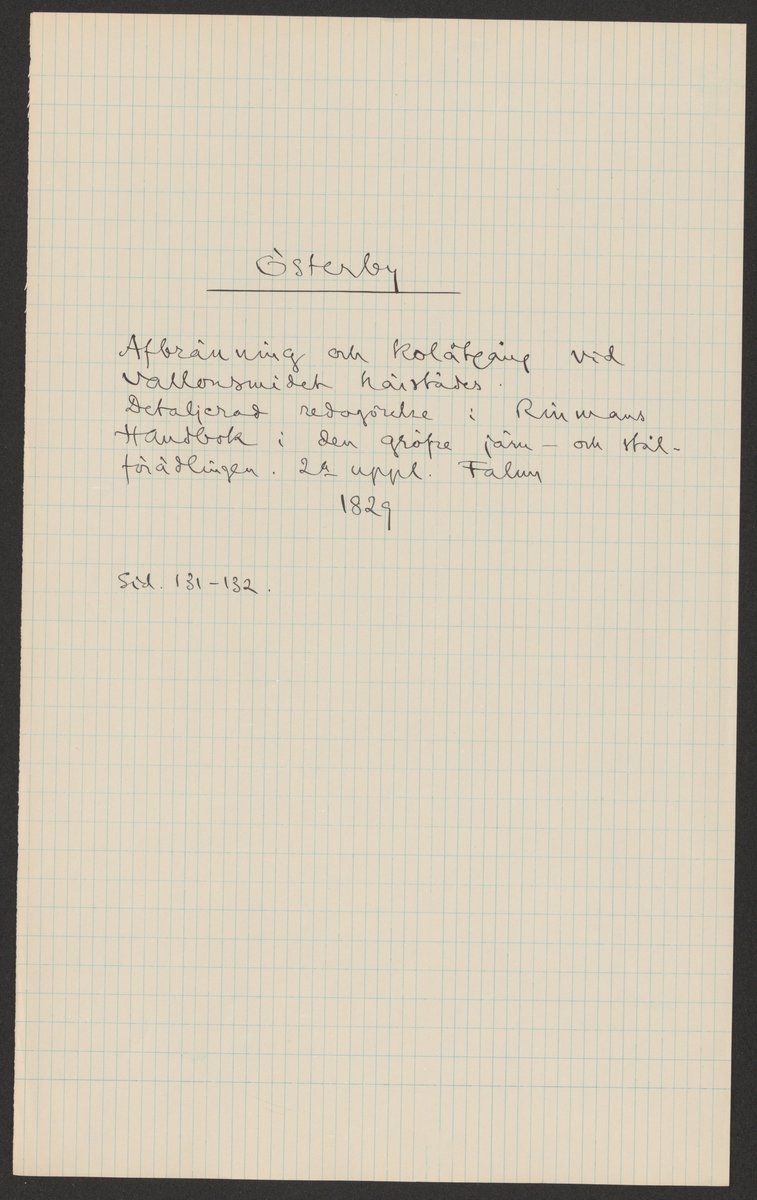 Österby
Afbränning och kolåtgång vid
Vallonsmidet härstädes.
Detaljerad redogörelse i Rinmans
Handbok i den gröfre järn- och stål-
förädlingen. 2a uppl. Falun
1829
Sid. 131-132.